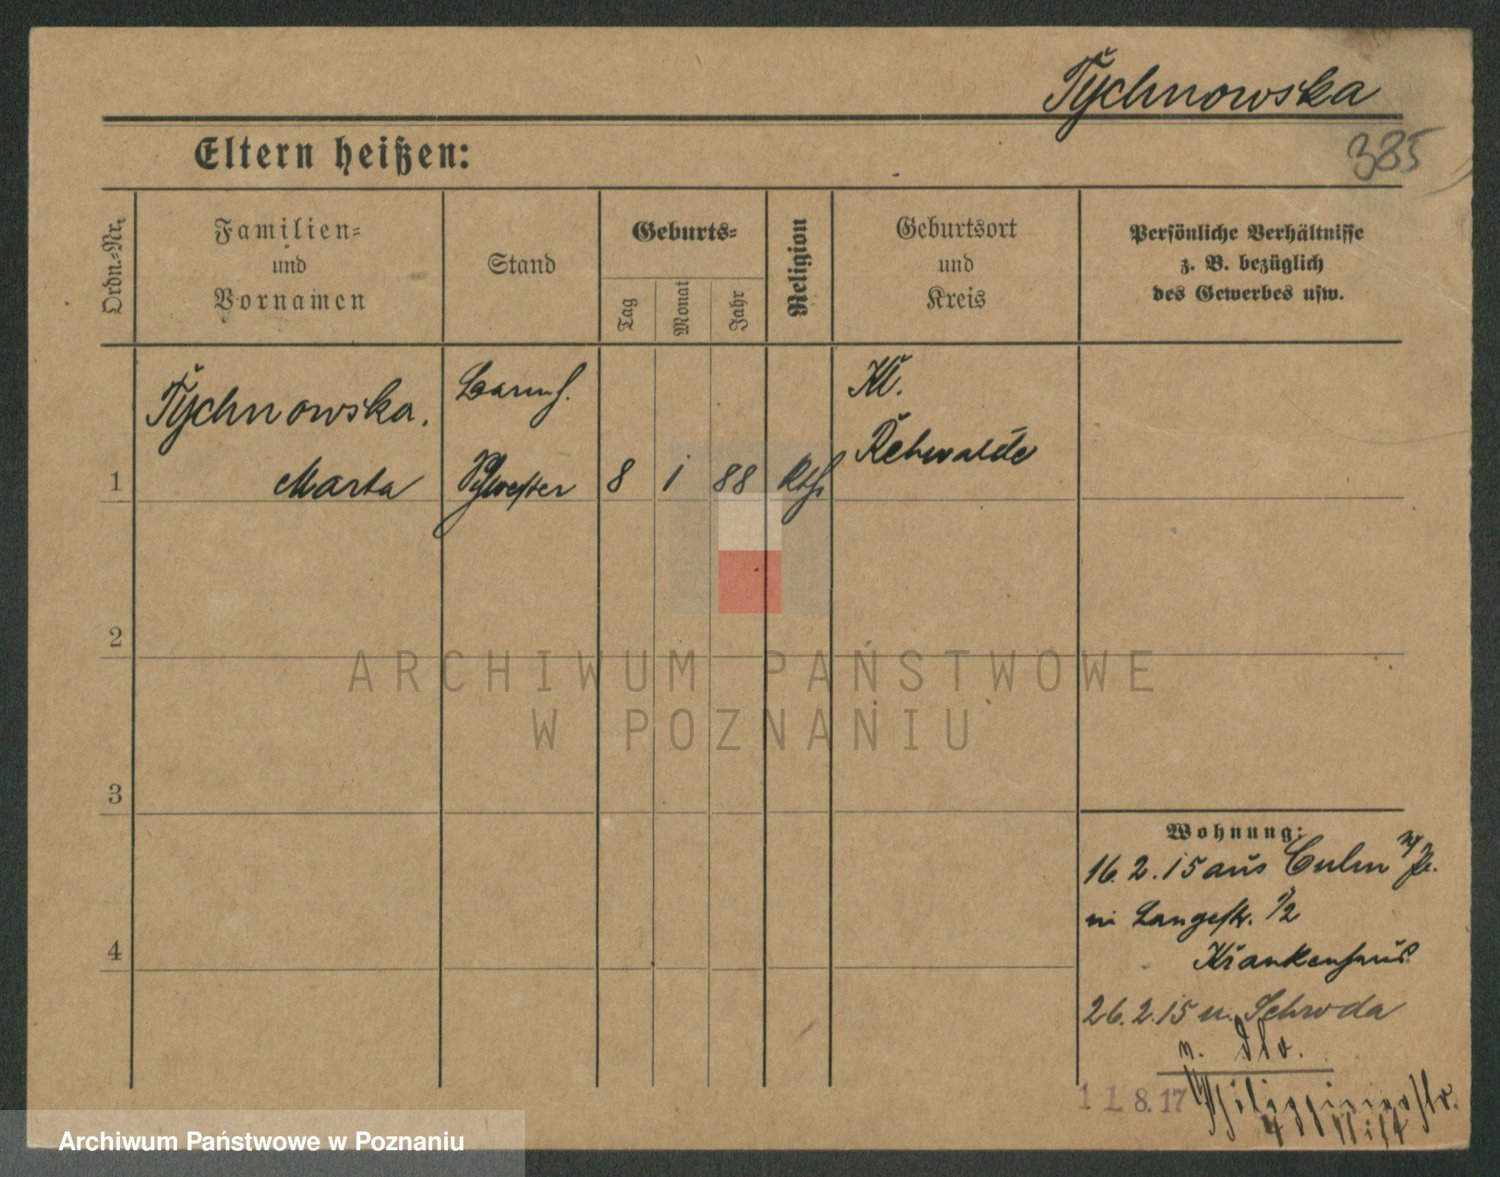 Tychnowska
385
Eltern heißen:
Ordn.-Nr.
Familien-
und
Vornamen
Stand
Geburts-
Tag
Monat
Jahr
Religion
Geburtsort
und
Kreis
Persönliche Verhältnisse
z. B. bezüglich
des Gewerbes usw.
Tychnowska.
Barmh.
Kl.
Rehwalde
1
Marta
Schwester
8
1
88
Kth
2
ARCHIWUM PAŃSTWOWE
W POZNANIU
3
Wohnung:
16.2.15 aus Culm
Langestr. 1/2
Krankenhaus
4
26.2.15 n. Schroda
11.8.17
Archiwum Państwowe w Poznaniu